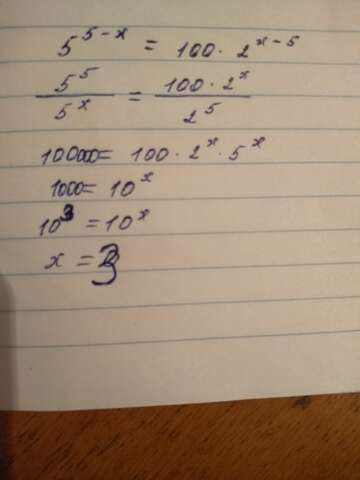 5^{5-x} = 100 · 2^{x-5}
5^5 / 5^x = 100 · 2^x / 2^5
100000 = 100 · 2^x · 5^x
1000 = 10^x
10^3 = 10^x
x = 3